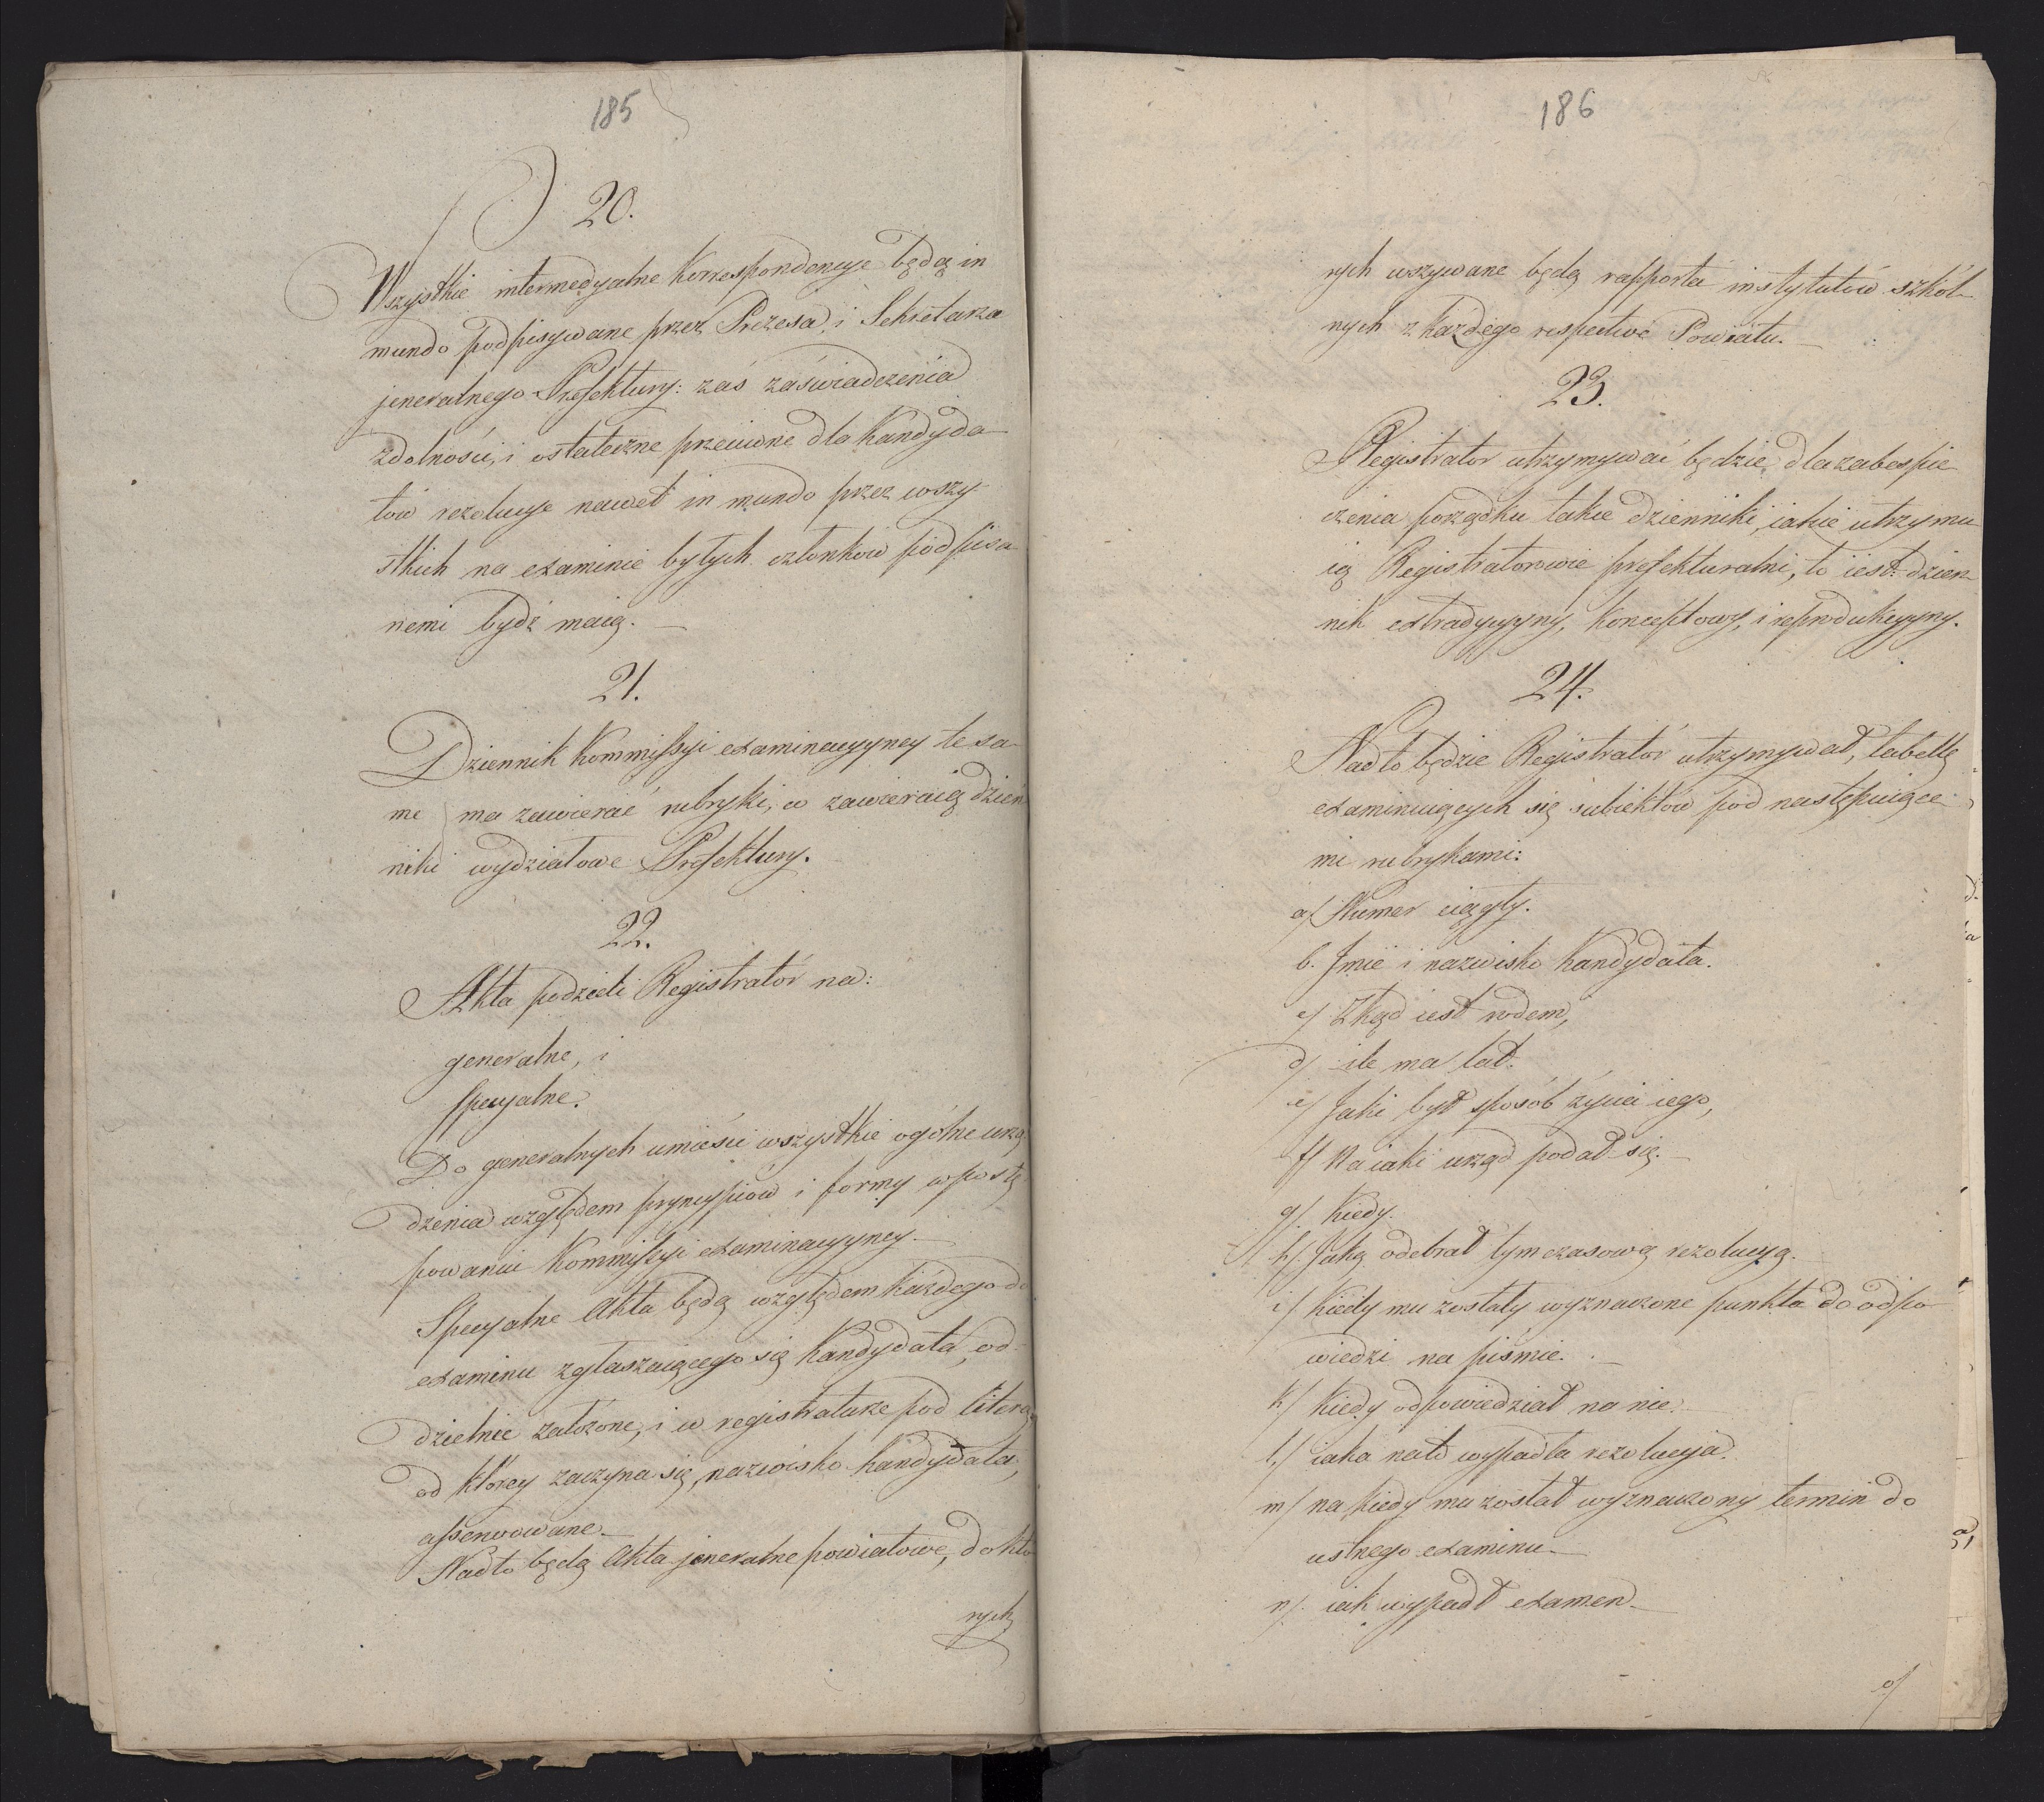 185
20.
Wszystkie intermedyalne Korrespondencye będą in
mundo podpisywane przez Prezesa i Sekretarza
jeneralnego Prefektury: zaś zaświadczenia
zdolności, i ostateczne przeciwne dla Kandyda
tów rezolucye nawet in mundo przez wszy
stkich na examinie byłych członków podpisa
nemi bydź maią.
21.
Dziennik Kommissyi examinacyyney te sa
me ma zawierać rubryki, co zawieraią dzien
niki wydziałowe Prefektury.
22.
Akta podzieli Registrator na:
generalne, i
specyalne.
Do generalnych umieści wszystkie ogólne urzą
dzenia względem pryncypiów i formy w postę
powaniu Kommissyi examinacyyney.
Specyalne Akta będą względem każdego do
examinu zgłaszaiącego się Kandydata, od
dzielnie założone, i w registraturze pod literą
od którey zaczyna się, nazwisko Kandydata,
asserwowane.
Nadto będą Akta jeneralne powiatowe, do któ
rych
186
rych wszywane będą rapporta instytutów szkól
nych z każdego respective Powiatu.
23.
Registrator utrzymywać będzie dla zabespie
czenia porządku takie dzienniki, iakie utrzymu
ią Registratorowie prefekturalni, to iest: dzien
nik extradycyyny, konceptowy, i reprodukcyyny.
24.
Nadto będzie Registrator utrzymywał, tabellę
examinuiących się subiektów pod następuiące
mi rubrykami:
a/ Numer ciągły.
b. Jmie i nazwisko Kandydata.
c/ Zkąd iest rodem,
d/ ile ma lat.
e/ Jaki był sposób życia iego,
f/ Na iaki urząd podał się.
g/. Kiedy.
h/. Jaką odebrał tymczasową rezolucyą.
i/ Kiedy mu zostały wyznaczone punkta do odpo
wiedzi na piśmie.
k/ Kiedy odpowiedział na nie.
l/ iaka na to wypadła rezolucyja.
m/ na kiedy mu został wyznaczony termin do
ustnego examinu.
n/. iak wypadł examen.
o/